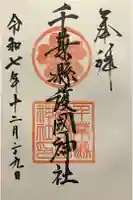 奉拝
千葉縣護國神社
令和七年十二月二十九日